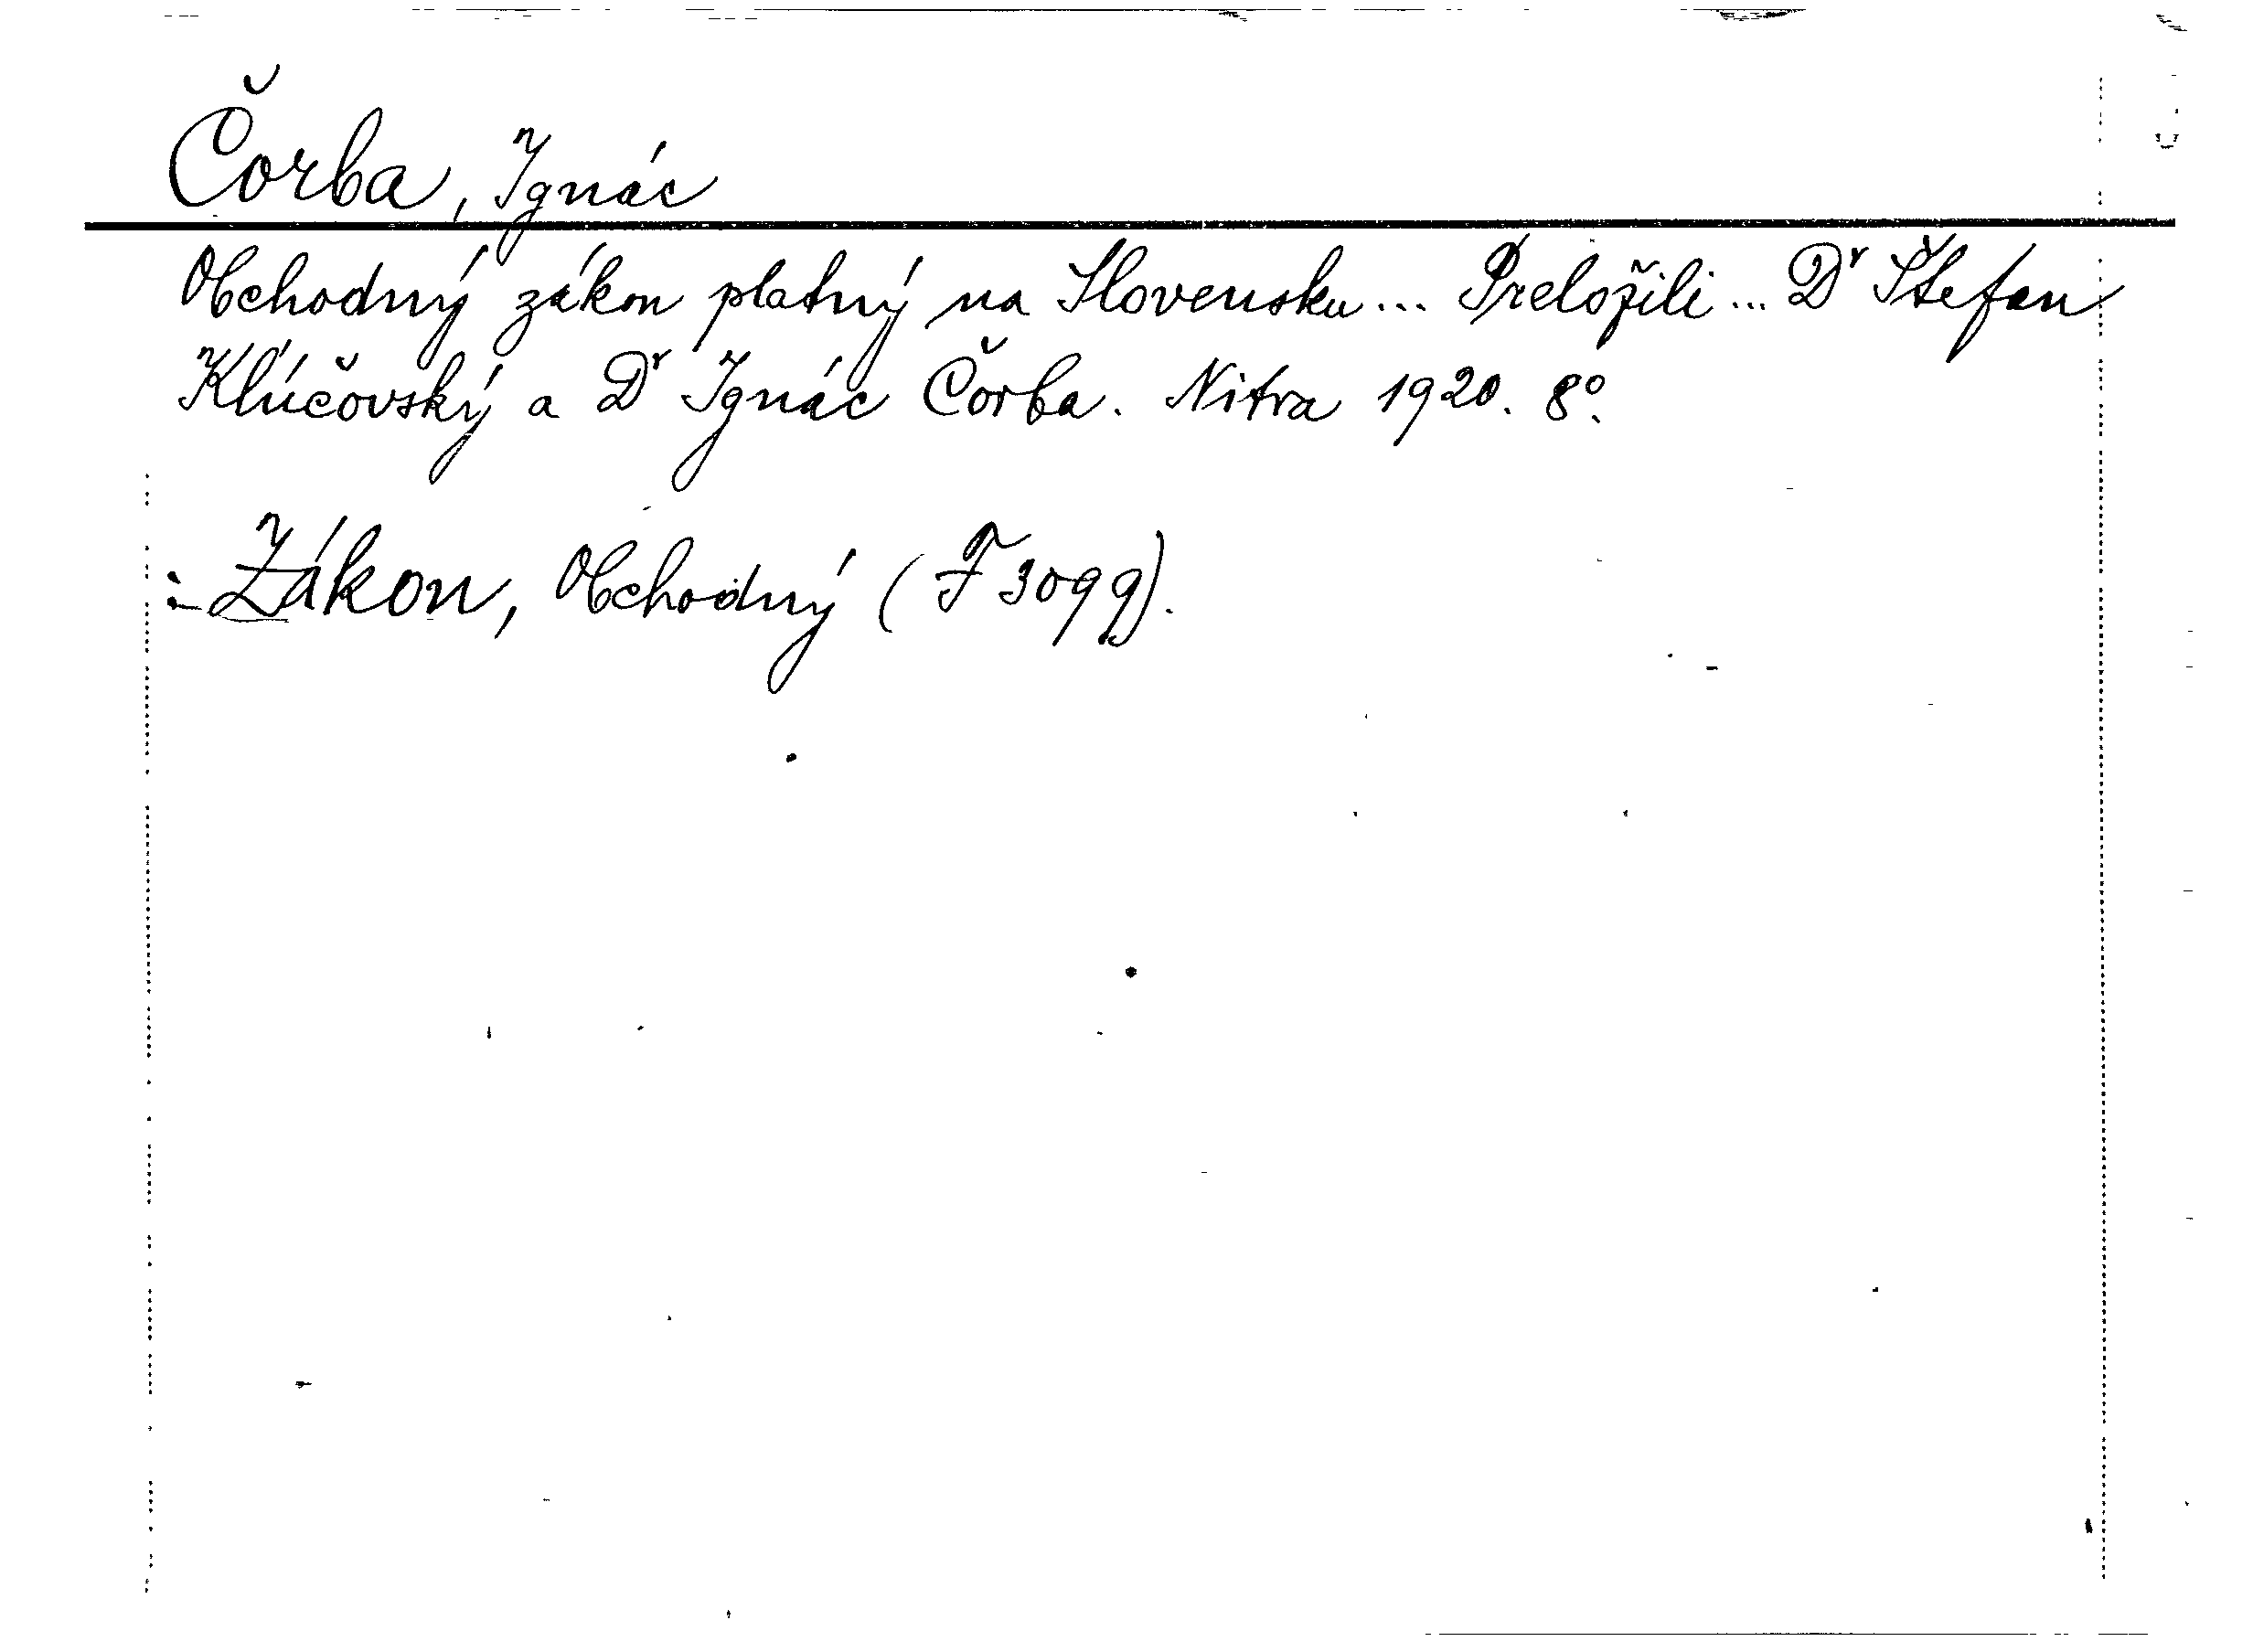 Čorba, Ignác
Obchodný zákon platný na Slovensku... Preložili... Dr Štefan
Kľúčovský a Dr Ignác Čorba. Nitra 1920. 8°.
: Zákon, Obchodný (F 3099).